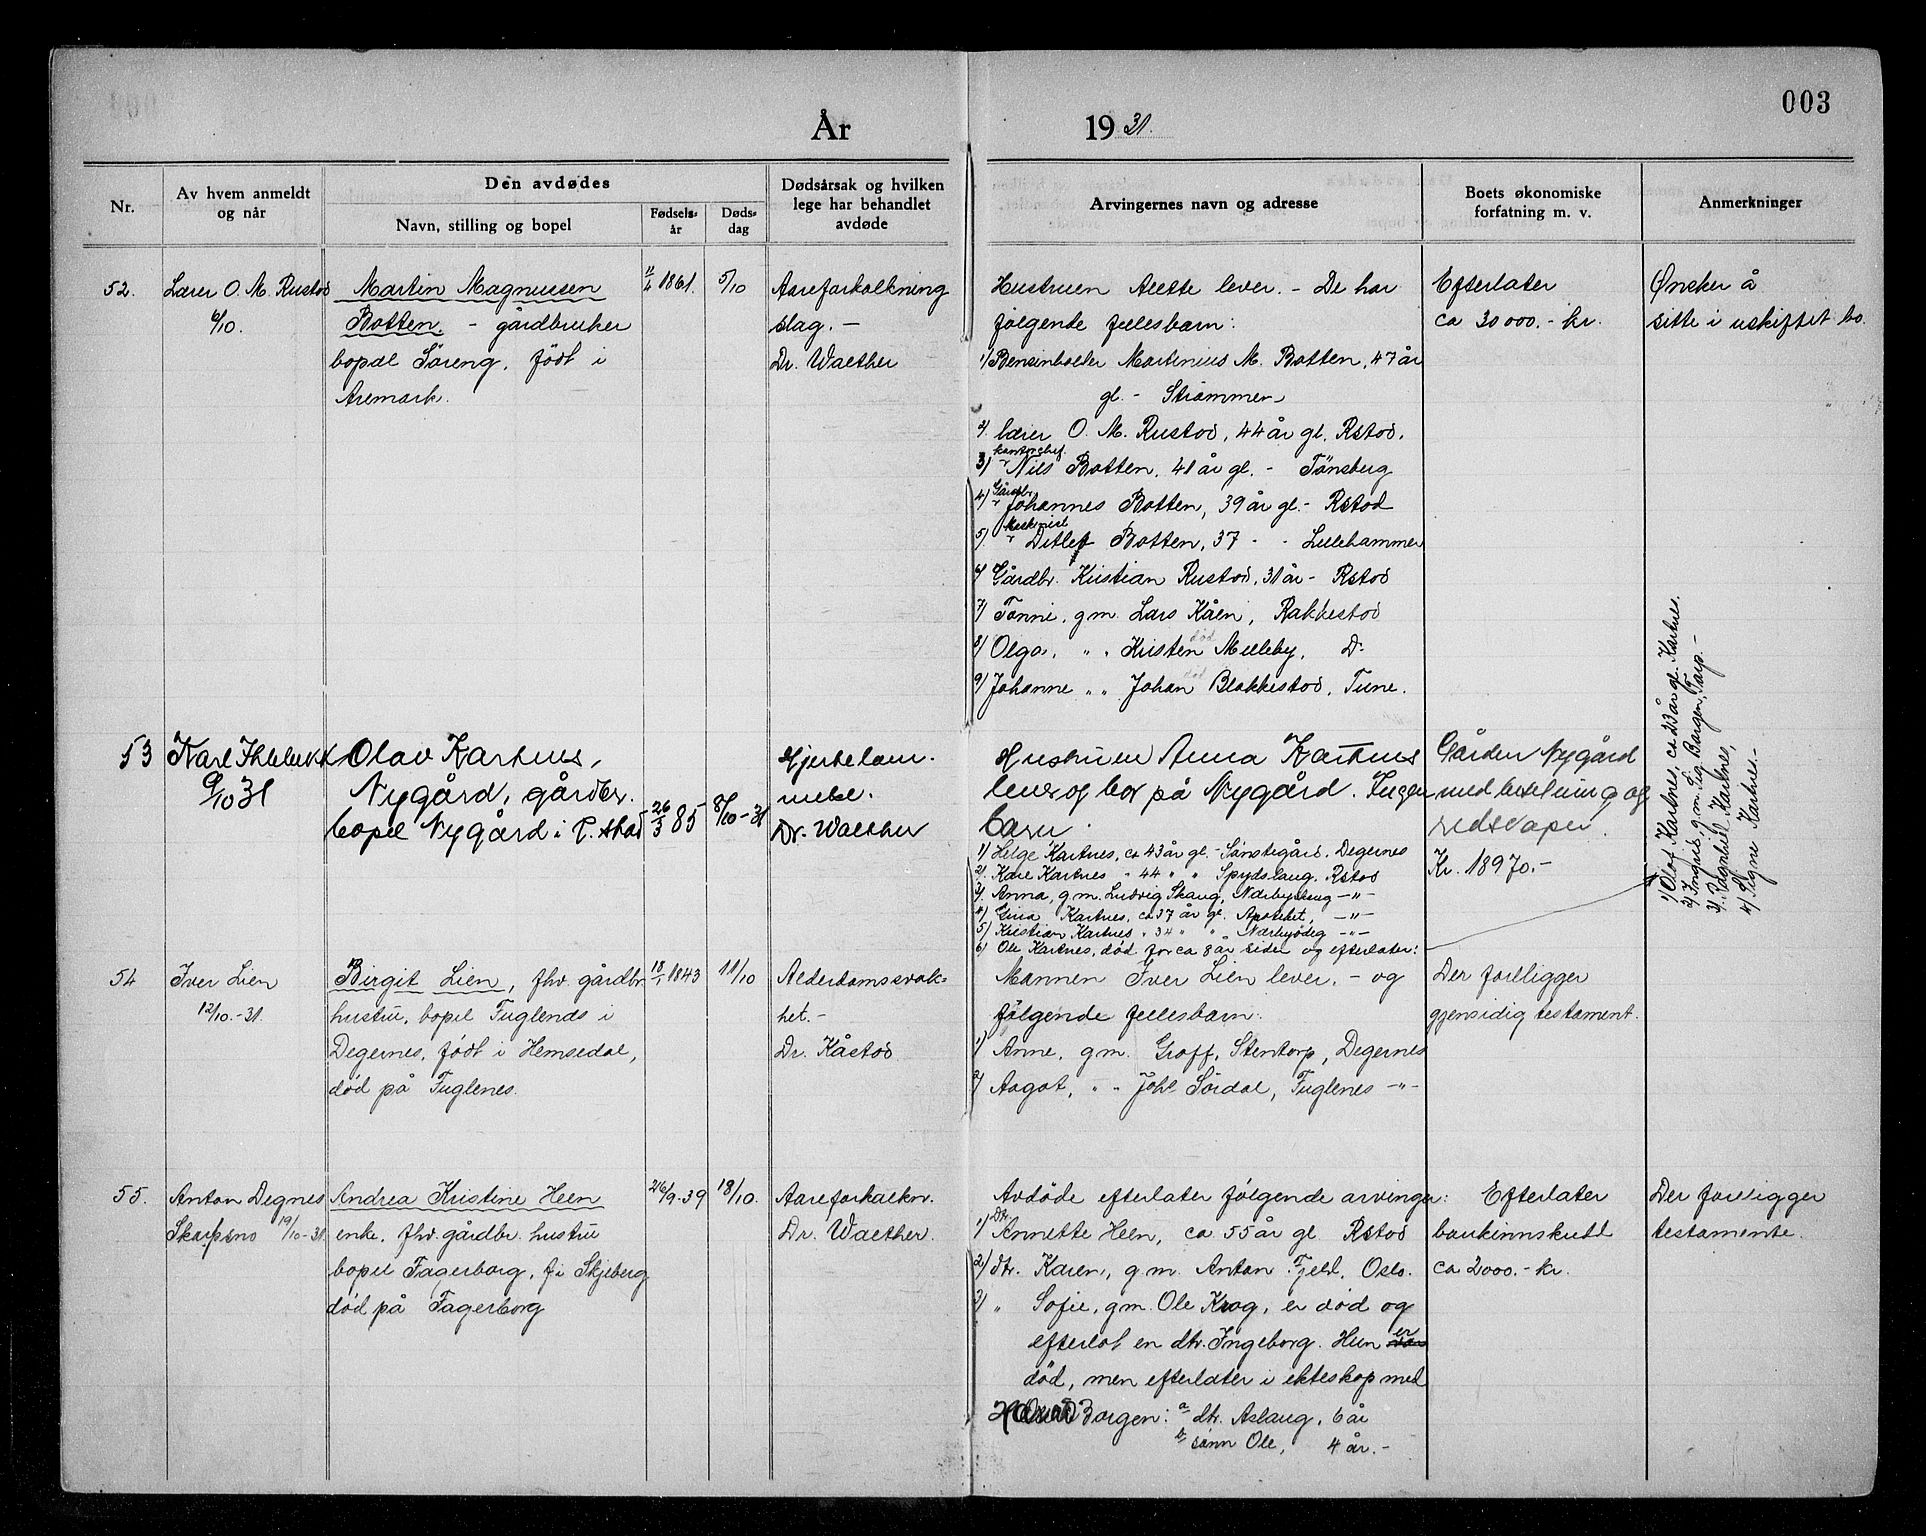 003
År 1931.
Nr.
Av hvem anmeldt og når
Den avdødes
Navn, stilling og bopel
Fødselsår
Dødsdag
Dødsårsak og hvilken lege har behandlet avdøde
Arvingernes navn og adresse
Boets økonomiske forfatning m. v.
Anmerkninger
52.
Lærer O. M. Rustad
6/10.
Martin Magnussen
Botten. - gårdbruker
bopel Søreng, født i
Aremark.
11/4 1861.
5/10
Aareforkalkning
slag. -
Dr. Walther
Hustruen Alette lever. - De har
følgende fellesbarn:
1) Martinius M. Botten, 47 år
gl. - Strømmen
2) lærer O. M. Rustad, 44 år gl. Rstad.
3) kontorchef Nils Botten, 41 år gl. - Tønsberg
4) Gårdbr. Johannes Botten, 39 år gl. - Rstad
5) Maskinist Ditlef Botten, 37 - - Lillehammer
6) Gårdbr. Kristian Rustad, 31 år - Rstad
7) Tonni, g.m. Lars Kåen, Rakkestad
8) Olga, " " Kristen død Melleby, Do
9) Johanne " " Johan Blakkestad, Tune.
Efterlater
ca 30 000.- kr.
Ønsker å
sitte i uskiftet bo.
53
Karl
9/10 31
Olav Kartnes,
Nygård, gårdbr.
bopel Nygård i R.stad
26/3 85
8/10-31
Hjertelammelse.
Dr. Walther
Hustruen Anna Kartnes
lever og bor på Nygård. Ingen
barn.
1) Helge Kartnes, ca 43 år gl. - Sønstegård, Degernes
2) Kare Kartnes " 44 " " Spydslaug, Rstad
3) Anna, g.m. Ludvig Skaug, -"-
4) Gina Kartnes, ca 37 år gl. Apoteket, -"-
5) Kristian Kartnes " 34 " " -"-
6) Ole Kartnes, død for ca 8 år siden og efterlater:
Gården Nygård
med besetning og
redskaper.
Kr. 18970.-
1) Olaf Kartnes, ca 23 år gl. Kartnes.
2) Ingrid, g.m. Sig. Borgen, Torp. -
3) Ragnhil Kartnes,
4) Signe Kartnes. -
54
Iver Lien
12/10.-31.
Birgit Lien, fhv. gårdbr.
hustru, bopel Fuglenes i
Degernes, født i Hemsedal,
død på Fuglenes.
18/1 1843
11/10
Alderdomssvak=
het. -
Dr. Kåstad
Mannen Iver Lien lever. - og
følgende fellesbarn:
1) Anne, g.m. Graff, Stentorp, Degernes
2) Aagot, " " Johs Sørdal, Fuglenes -"-
Der foreligger
gjensidig testament.
55.
Anton Degnes
Skarpsno 19/10-31
Andrea Kristine Heen
enke, fhv. gårdbr. hustru
bopel Fagerborg, f. i Skjeberg
død på Fagerborg
26/9-39
18/10.
Aareforkalkn.
Dr. Walther.
Avdøde efterlater følgende arvinger:
1) Dtr. Annette Heen, ca 55 år gl Rstad
2) dtr. Karen, g.m. Anton Fjeld, Oslo.
3) " Sofie, g.m. Ole Krog, er død og
efterlot en dtr. Ingeborg. Hun er
død, men efterlater i ekteskap med
Borgen: a dtr. Aslaug, 6 år
b sønn Ole, 4 år. -
Efterlater
bankinnskudd
ca 2000.- kr.
Der foreligger
testamente.